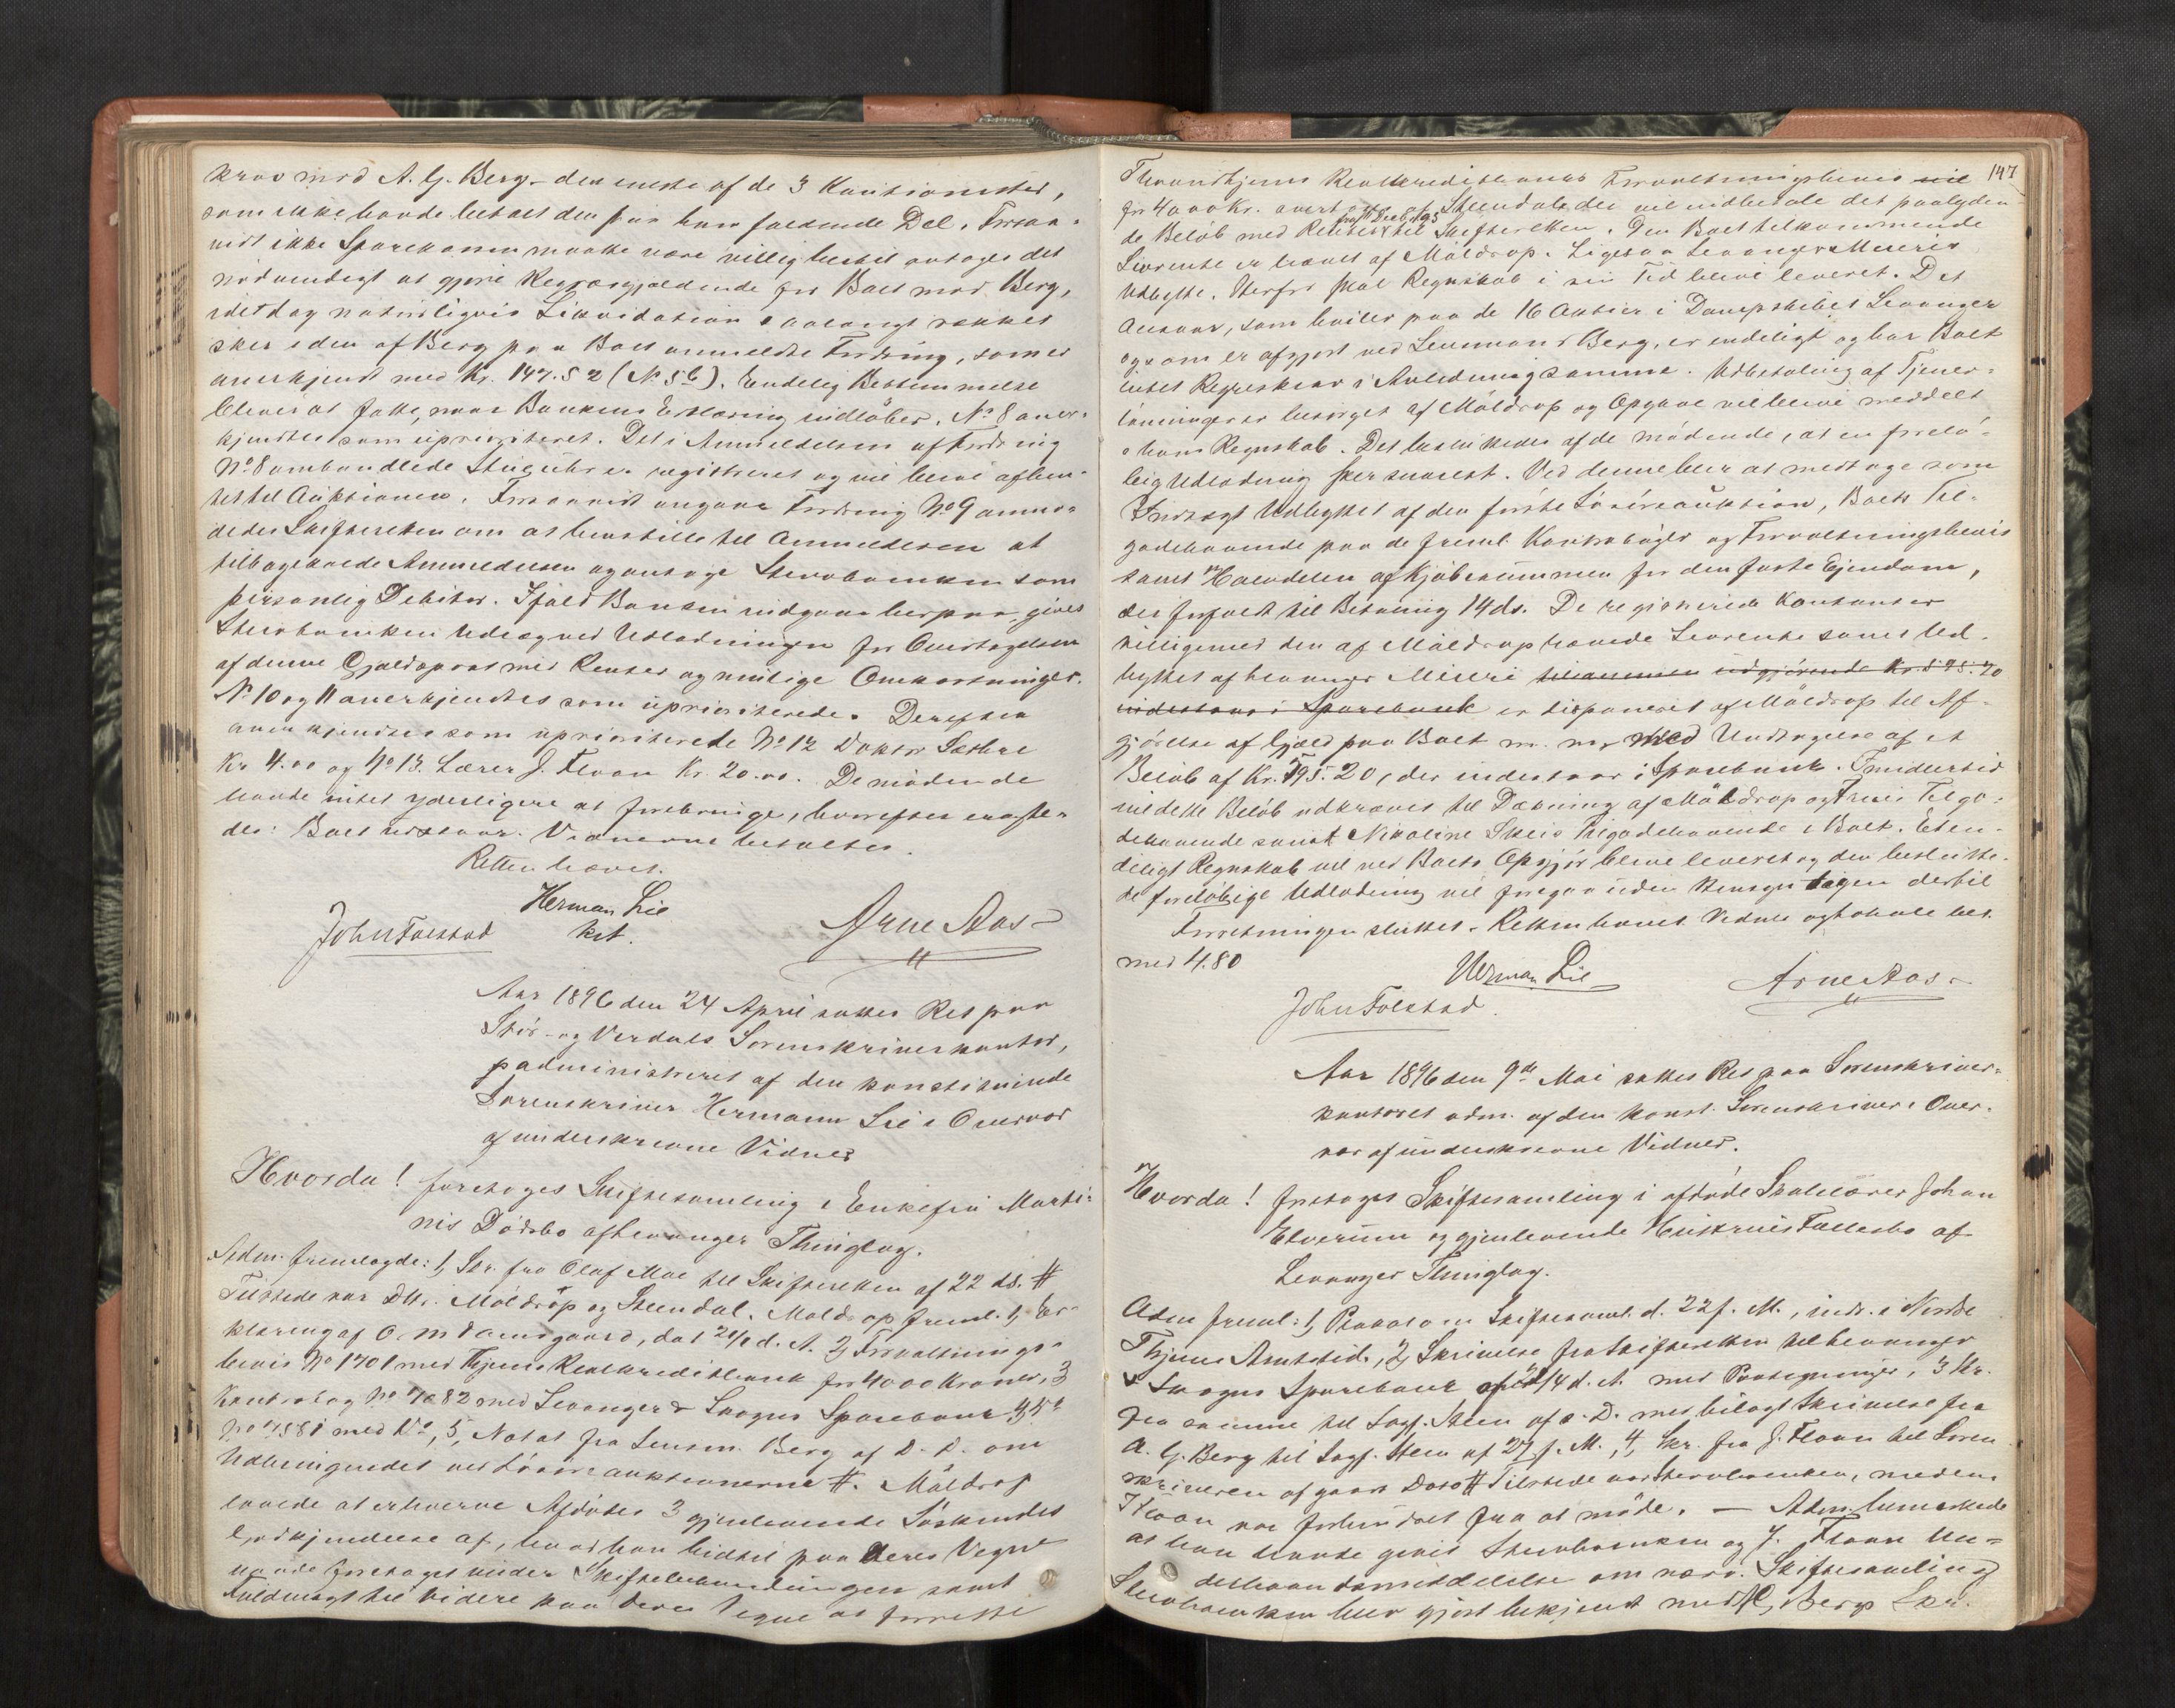 krav mod A. G. Berg – den eneste af de 3 Kautionister,
som ikke havde betalt den paa ham faldende Del. Forsaa-
vidt ikke Sparekassen maatte være villig hertil antages det
nødvendigt at gjøre Regres gjældende for Boet mod Berg,
idet dog naturligvis Likvidation saalangt rækker
sker i den af Berg paa Boet anmeldte Fordring, som er
anerkjendt med Kr. 147.52 (No 5 b). Endelig Bestemmelse
bliver at fatte, naar Bankens Erklæring indløber. No 8 aner-
kjendtes som uprioriteret. Det i Anmeldelsen af Fordring
No 8 omhandlede Stueuhr er registreret og vil blive afhen-
tet til Auktionen. Forsaavidt angaar Fordring No 9 anmo-
dedes Skifteretten om at henstille til Anmelderen at
tilbagekalde Anmeldelsen og antage Stervboenken som
personlig Debitor. Ifald Banken indgaar herpaa, gives
Stervboenken Udlæg ved Udlodningen for Overtagelsen
af denne Gjældspost med Renter og mulige Omkostninger.
No 10 og 11 anerkjendtes som uprioriterede. Derefter
anerkjendtes som uprioriterede No 12 Doktor Sæther
Kr 4.00 og No 13. Lærer J. Floan Kr. 20.00. De mødende
havde intet yderligere at frembringe, hvorefter eragte-
des: Boet udstaar. Vidnerne betaltes.
Retten hævet.
Herman Lie
kst.
John Folstad
Arne Aas
Aar 1896 den 24 April sattes Ret paa
Stør- og Verdals Sorenskriverkontor,
administreret af den konstituerede
Sorenskriver Hermann Lie i Overvær
af underskrevne Vidner
Hvorda! foretoges Skiftesamling i Enkefru Marti-
nis Dødsbo af Levanger Thinglag.
Adm. fremlagde: 1, Skr. fra Olaf Moe til Skifteretten af 22 ds. #
Tilstede var DHr. Møldrop og Stendal. Moldrop freml. 1, Er-
klæring af O. M. Damsgaard, dat d. A. 2, Forvaltnings-
bevis No 1701 med Thjems Realkreditbank for 4000 Kroner, 3
Kontrabog No 7082 med Levanger & Skogns Sparebank, 4,
No 7581 med Do, 5, Notat fra Lensm. Berg af D. D. om
Udbringendet ved Løsøreauktionerne #. Møldrop
lovede at erhverve Afdødes 3 gjenlevende Søskendes
Godkjendelse af, hvad han hidtil paa deres Vegne
havde foretaget under Skiftebehandlingen samt
Fuldmagt til videre paa deres Vegne at forrette
147
Throndhjems Realkreditbanks Forvaltningsbevis vil
for 4000 Kr. overtages af Steendal, der vil indbetale det paalyden-
fra 11 Decbr. 95
de Beløb med Renter til Skifteretten. Den Boet tilkommende
Livrente er hævet af Møldrop. Ligesaa Levanger Meieris
Udbytte. Herfor skal Regnskab i sin Tid blive leveret. Det
Ansvar, som hviler paa de 16 Aktier i Dampskibet Levanger
og som er afgjort ved Lensmand Berg, er endeligt og har Boet
intet Regreskrav i Anledning samme. Udbetaling af Tjener-
lønninger er besørget af Møldrop og Opgave vil blive meddelt
i hans Regnskab. Det besluttedes af de mødende, at en forelø-
big Udlodning sker snarest. Ved denne blir at medtage som
Indtægt Udbyttet af den første Løsøreauktion, Boets Til-
godehavende paa de freml. Kontrabøger og Forvaltningsbevis
samt Halvdelen af Kjøbesummen for den faste Eiendom,
der forfaldt til Betaling 14 ds. De registrerede Kontanter
tilligemed den af Møldrop hævede Livrente samt Ud-
byttet af Levanger Meieri tilsammen udgjørende Kr. 595.20
indestaar i Sparebank er disponeret af Møldrop til Af-
gjørelse af Gjæld paa Boet m. m. med Undtagelse af et
Beløb af Kr. 595.20, der indestaar i Sparebank. Imidlertid
vil dette Beløb udkræves til Dækning af Møldrop og Frues Tilgo-
dehavende samt Nikoline Skeis Tilgodehavende i Boet. Et en-
deligt Regnskab vil ved Boets Opgjør blive leveret og den beslutte-
de foreløbige Udlodning vil foregaa uden Hensyntagen dertil
Forretningen sluttet. Retten hævet. Vidner og Lokale bet.
med 4.80
Herman Lie
John Folstad.
Arne Aas
Aar 1896 den 9de Mai sattes Ret paa Sorenskriver-
kontoret adm. af den konst. Sorenskriver i Over-
vær af underskrevne Vidner.
Hvorda! foretoges Skiftesamling i afdøde Skolelærer Johan
Elverum og gjenlevende Hustrues Fællesbo af
Levanger Thinglag.
Adm freml: 1, Proklama Skiftesaml. d. 22 f. M., indr. i Nordre
Thjems Amtstid., 2, Skrivelse fra Skifteretten til Levanger
& Skogns Sparebank af /4 d. A. med Paategninger, 3 Skr.
fra samme til Sagf. Steen af s. D. med bilagt Skrivelse fra
A. G. Berg til Sagf. Steen af 27 f. M., 4, Skr. fra J. Floan til Soren-
skriveren af gaars Dato # Tilstede var Stervboenken, medens
Floan var forhindret fra at møde. – Adm. bemærkede
at han havde givet Stervboenken og J. Floan Un-
derhaandsmeddelelse om nærv. Skiftesamling
Stervboenken blev gjort bekjendt med Bergs Skr.